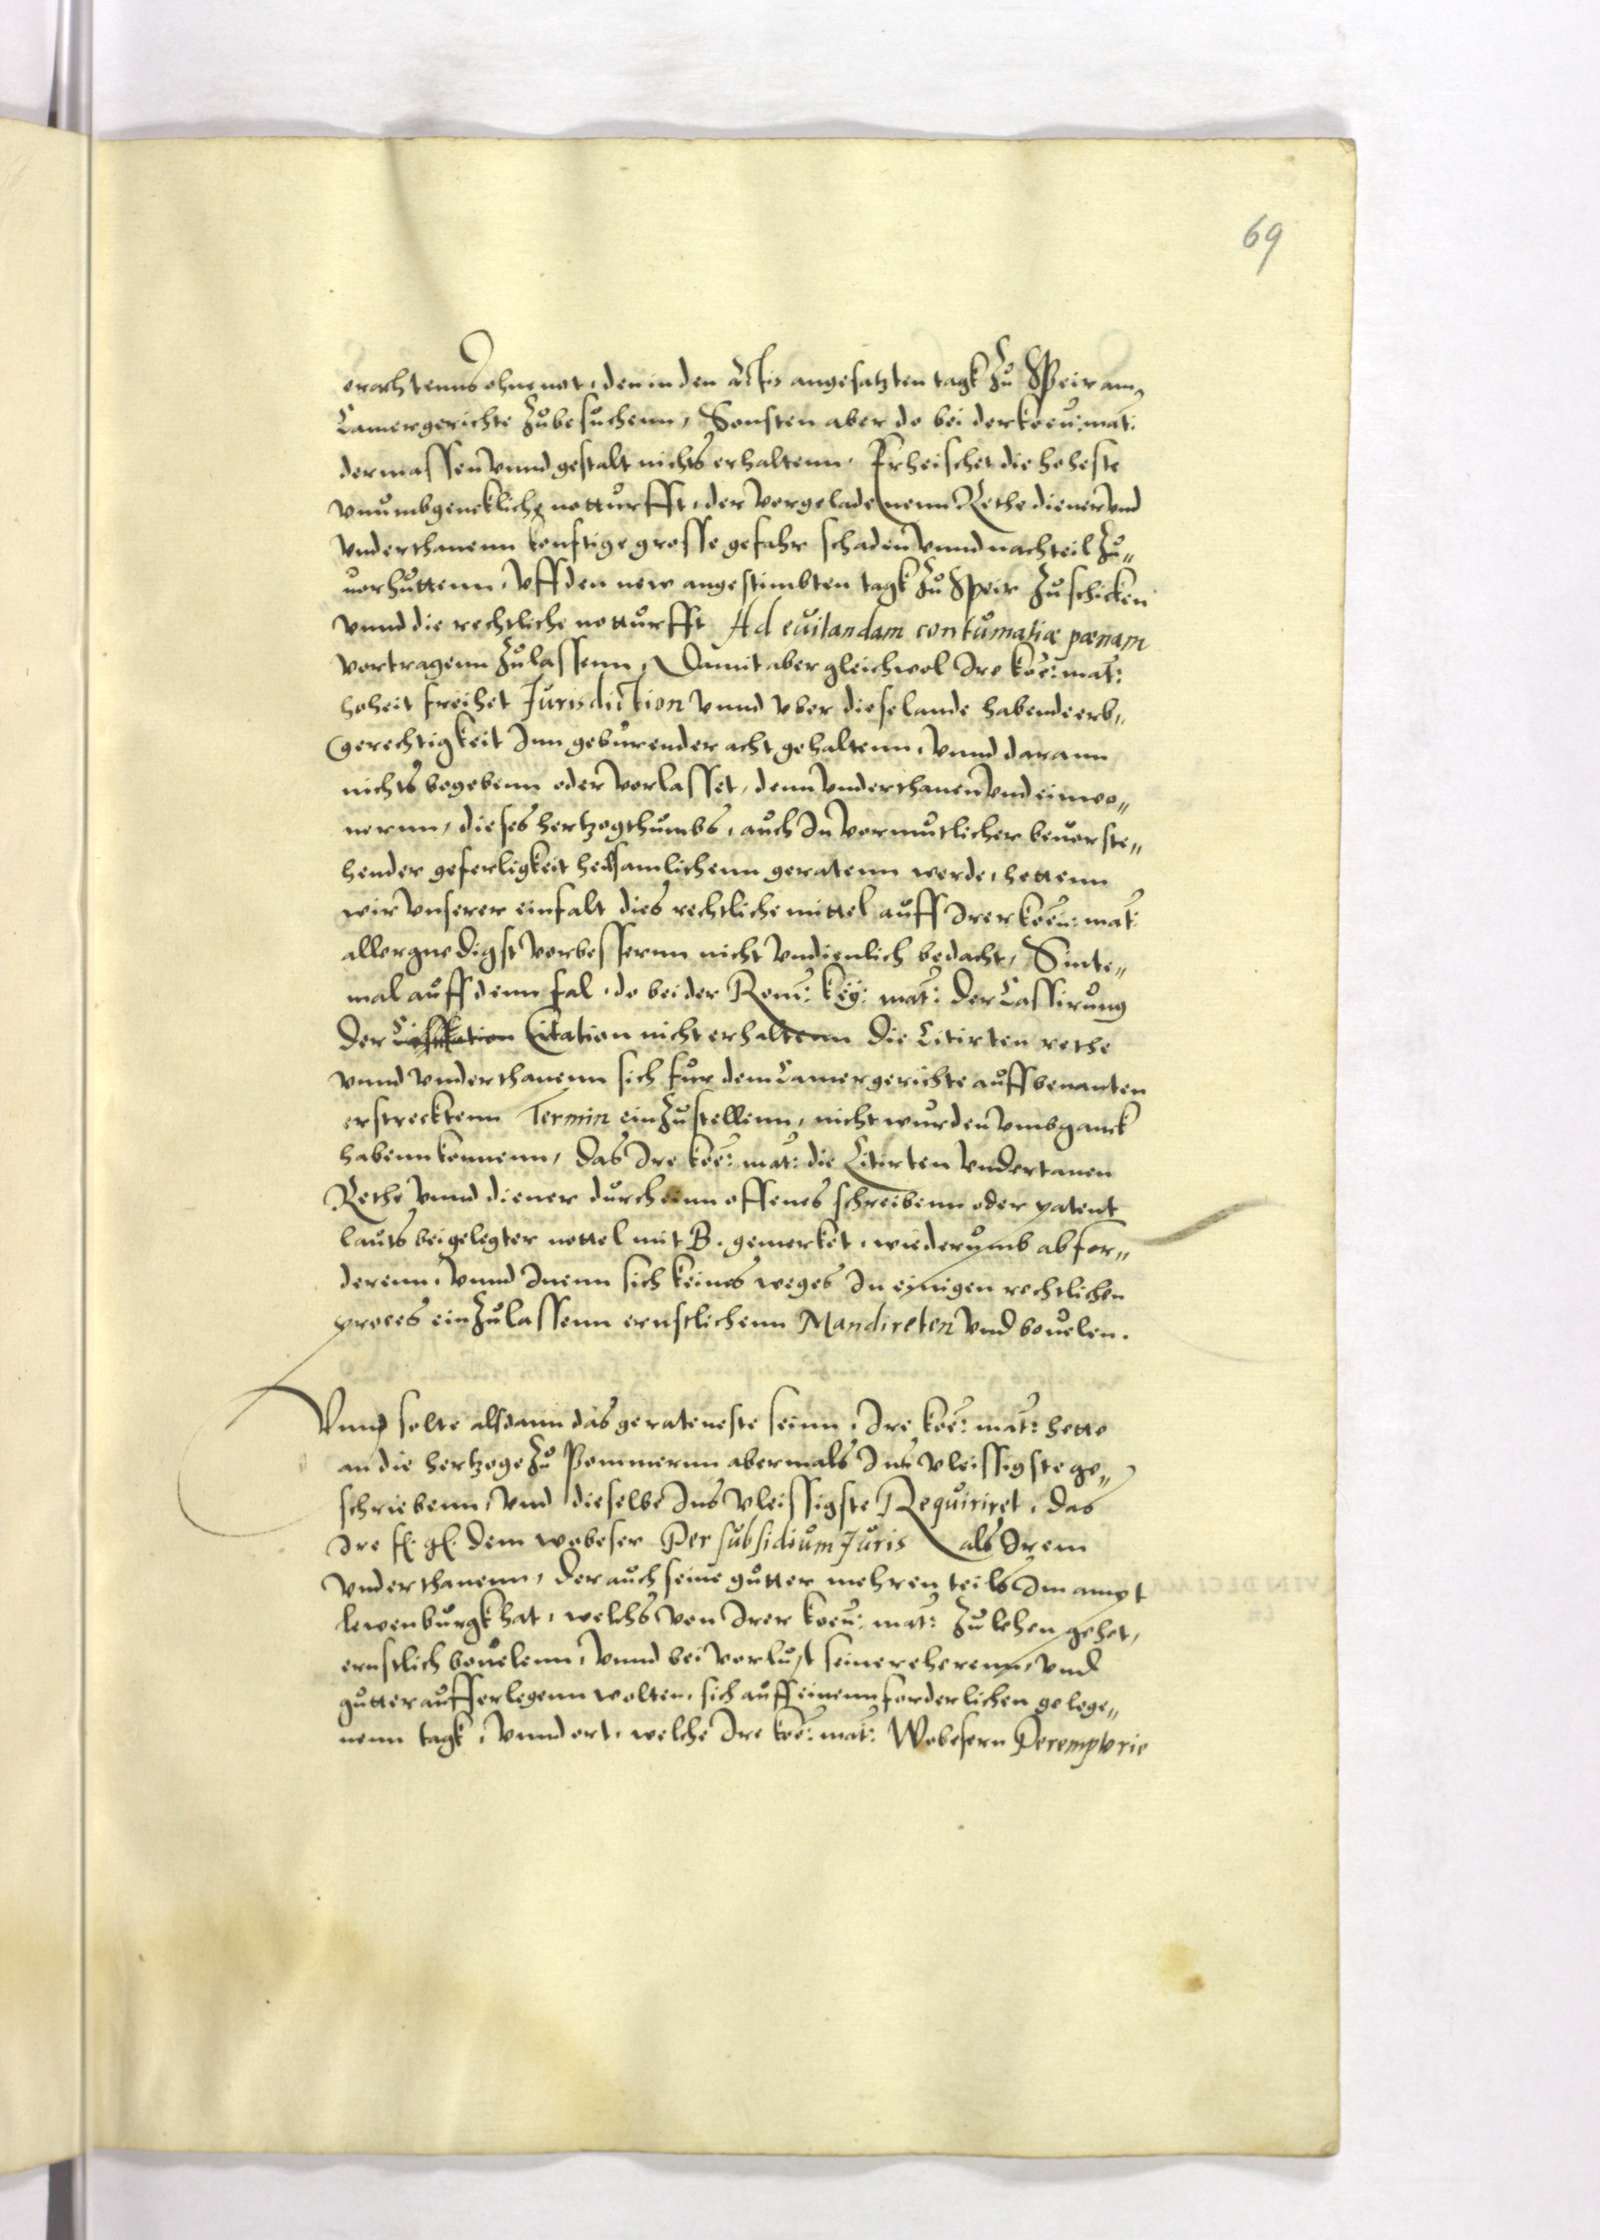 69
erachtenns ohne not, den in den Actis angesatzten tagk zu Speir am
Camergerichte zubesuchenn, Sonsten aber do bei der koeu: mat:
dermassen vnnd gestalt nichts erhaltenn, Erheischet die hoheste
vnumbgencklich notturfft, der vorgeladenenn Rethe diener vnd
vnderthanenn konftige grosse gefahr schaden vnnd nachteil zu„
uorhuttenn, vff den new angestimbten tagk zu Speir zuschicken
vnnd die rechtliche notturfft Ad euitandam contumatiæ pœnam
vortragenn zulassenn, Damit aber gleichwol Ire koe: mat:
hoheit freihet Jurisdiction vnnd vber diese lande habende erb„
gerechtigkeit Inn geburender acht gehaltenn, vnnd darann
nichts begebenn oder vorlasset, denn vnderthanen vnd einwo„
nernn, dieses hertzogthumbs, auch In vormutlicher beuorste„
hender geferligkeit heilsamlichenn geratenn werde, hettenn
wir vnserer einfalt dies rechtliche mittel auff Irer koeu: mat:
allergnedigst vorbessernn nicht vndienlich bedacht, Sinte„
mal auff denn fal, do bei der Rom: key: mat: der Cassirung
der Citation nicht erhaltenn die Citirten rethe
vnnd vnderthanenn sich fur dem Camergerichte auff benanten
erstrecktenn Termin einzustellenn, nicht wurden vmbganck
habenn konnenn, das Ire koe: mat: die Citirten vndertanen
Rethe vnnd diener durch einn offenes schreibenn oder patent
lauts beigelegter nottel mit B. gemerket, wiederumb abfor„
derenn, vnnd Inenn sich keines weges In einigen rechtlichen
proces einzulassenn ernstlichenn Mandireten vnd beuelen.
Vnnd solte alsdann das gerateneste seinn, Ire koe: mat: hette
an die hertzoge zu Pommernn abermals Ins vleissigste ge„
schriebenn, vnd dieselbe Ins vleissigste Requiriret, das
Ire f. g. dem wobeser Per subsidium Juris als Irem
vnderthanenn, der auch seine gutter mehren teils Im ampt
lewenburgk hat, welchs von Irer koeu: mat: zu lehen gehet,
ernstlich beuelenn, vnnd bei vorlust seiner eherenn, vnd
gutter aufferlegenn wolten, sich auff einenn forderlichen gelege„
nenn tagk, vnnd ort, welche Ire koe: mat: Wobesern Peremptorie